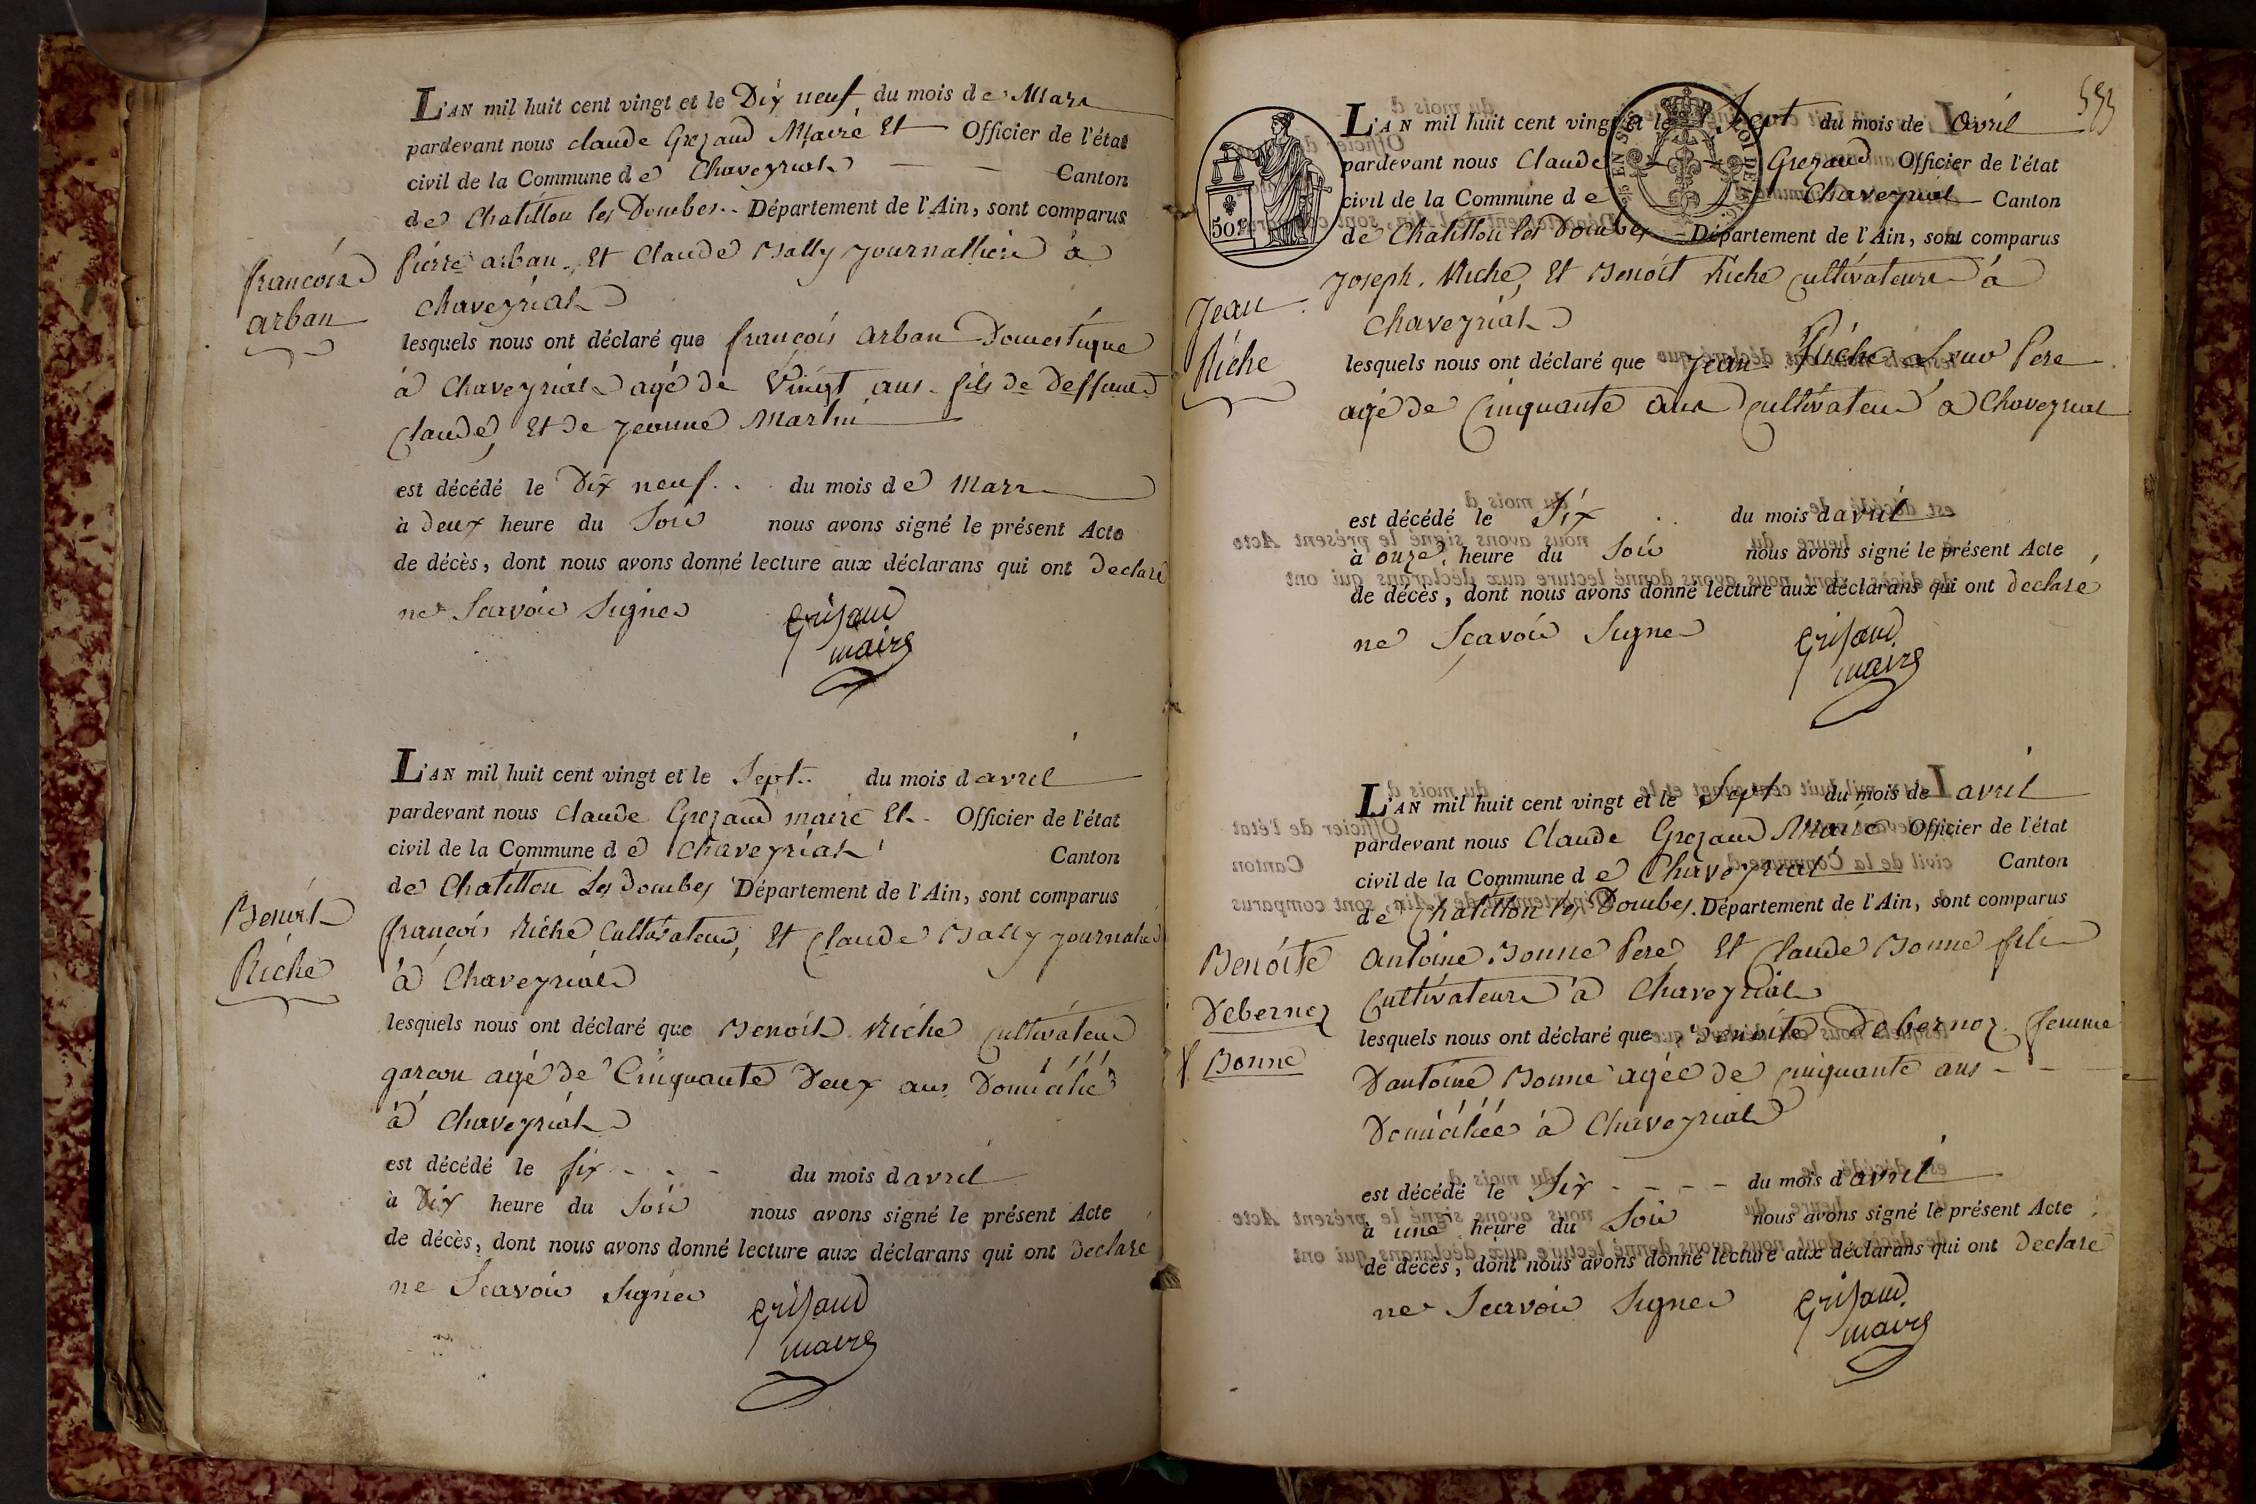 L'AN mil huit cent vingt et le Dix neuf du mois de Mars
pardevant nous claude Grezaud Maire Et Officier de l'état
civil de la Commune de Chaveyriat Canton
de Chatillon les Dombes Département de l'Ain, sont comparus
pierre arban Et Claude Bally journallier à
chaveyriat
françois
arban
lesquels nous ont déclaré que françois arban Domestique
à Chaveyriat agé de Vingt ans fils de deffunt
Claude, Et de jeanne Martin
est décédé le Dix neuf du mois de Mars
à deux heure du Soir nous avons signé le présent Acte
de décès, dont nous avons donné lecture aux déclarans qui ont declaré
ne Scavoir Signer Grisaud
maire
L'AN mil huit cent vingt et le Sept du mois d avril
pardevant nous Claude Grezaud maire Et Officier de l'état
civil de la Commune de Chaveyriat Canton
de Chatillon Les Dombes Département de l'Ain, sont comparus
Benoit
Riche
françois Riche Cultivateur, Et Claude Bally journalier
à Chaveyriat
lesquels nous ont déclaré que Benoit Riche cultivateur
garcon agé de Cinquante Deux ans Domicilié
à Chaveyriat
est décédé le six du mois d avril
à Dix heure du Soir nous avons signé le présent Acte
de décès, dont nous avons donné lecture aux déclarans qui ont declaré
ne Scavoir Signer Grisaud
maire
L'AN mil huit cent vingt et le Sept du mois de avril
pardevant nous Claude Grezaud Officier de l'état
civil de la Commune de Chaveyriat Canton
50 c
de Chatillon les Dombes Département de l'Ain, sont comparus
joseph Riche, Et Benoit Riche cultivateurs à
Chaveyriat
Jean
Riche
lesquels nous ont déclaré que jean Riche Pere
agé de Cinquante ans cultivateur à Chaveyriat
est décédé le Six du mois d avril
à onze heure du Soir nous avons signé le présent Acte
de décès, dont nous avons donné lecture aux déclarans qui ont declaré
ne Scavoir Signer Grisaud
maire
L'AN mil huit cent vingt et le Sept du mois de avril
pardevant nous Claude Grezaud Maire Officier de l'état
civil de la Commune de Chaveyriat Canton
de Chatillon les Dombes Département de l'Ain, sont comparus
Benoite
Debernoz
f Bonne
antoine Bonne Pere Et Claude Bonne fils
Cultivateurs à Chaveyriat
lesquels nous ont déclaré que Benoite Debernoz femme
D'antoine Bonne agée de cinquante ans
Domiciliée à Chaveyriat
est décédé le Six du mois d avril
à une heure du Soir nous avons signé le présent Acte
de décès, dont nous avons donné lecture aux déclarans qui ont declaré
ne Scavoir Signer Grisaud
maire